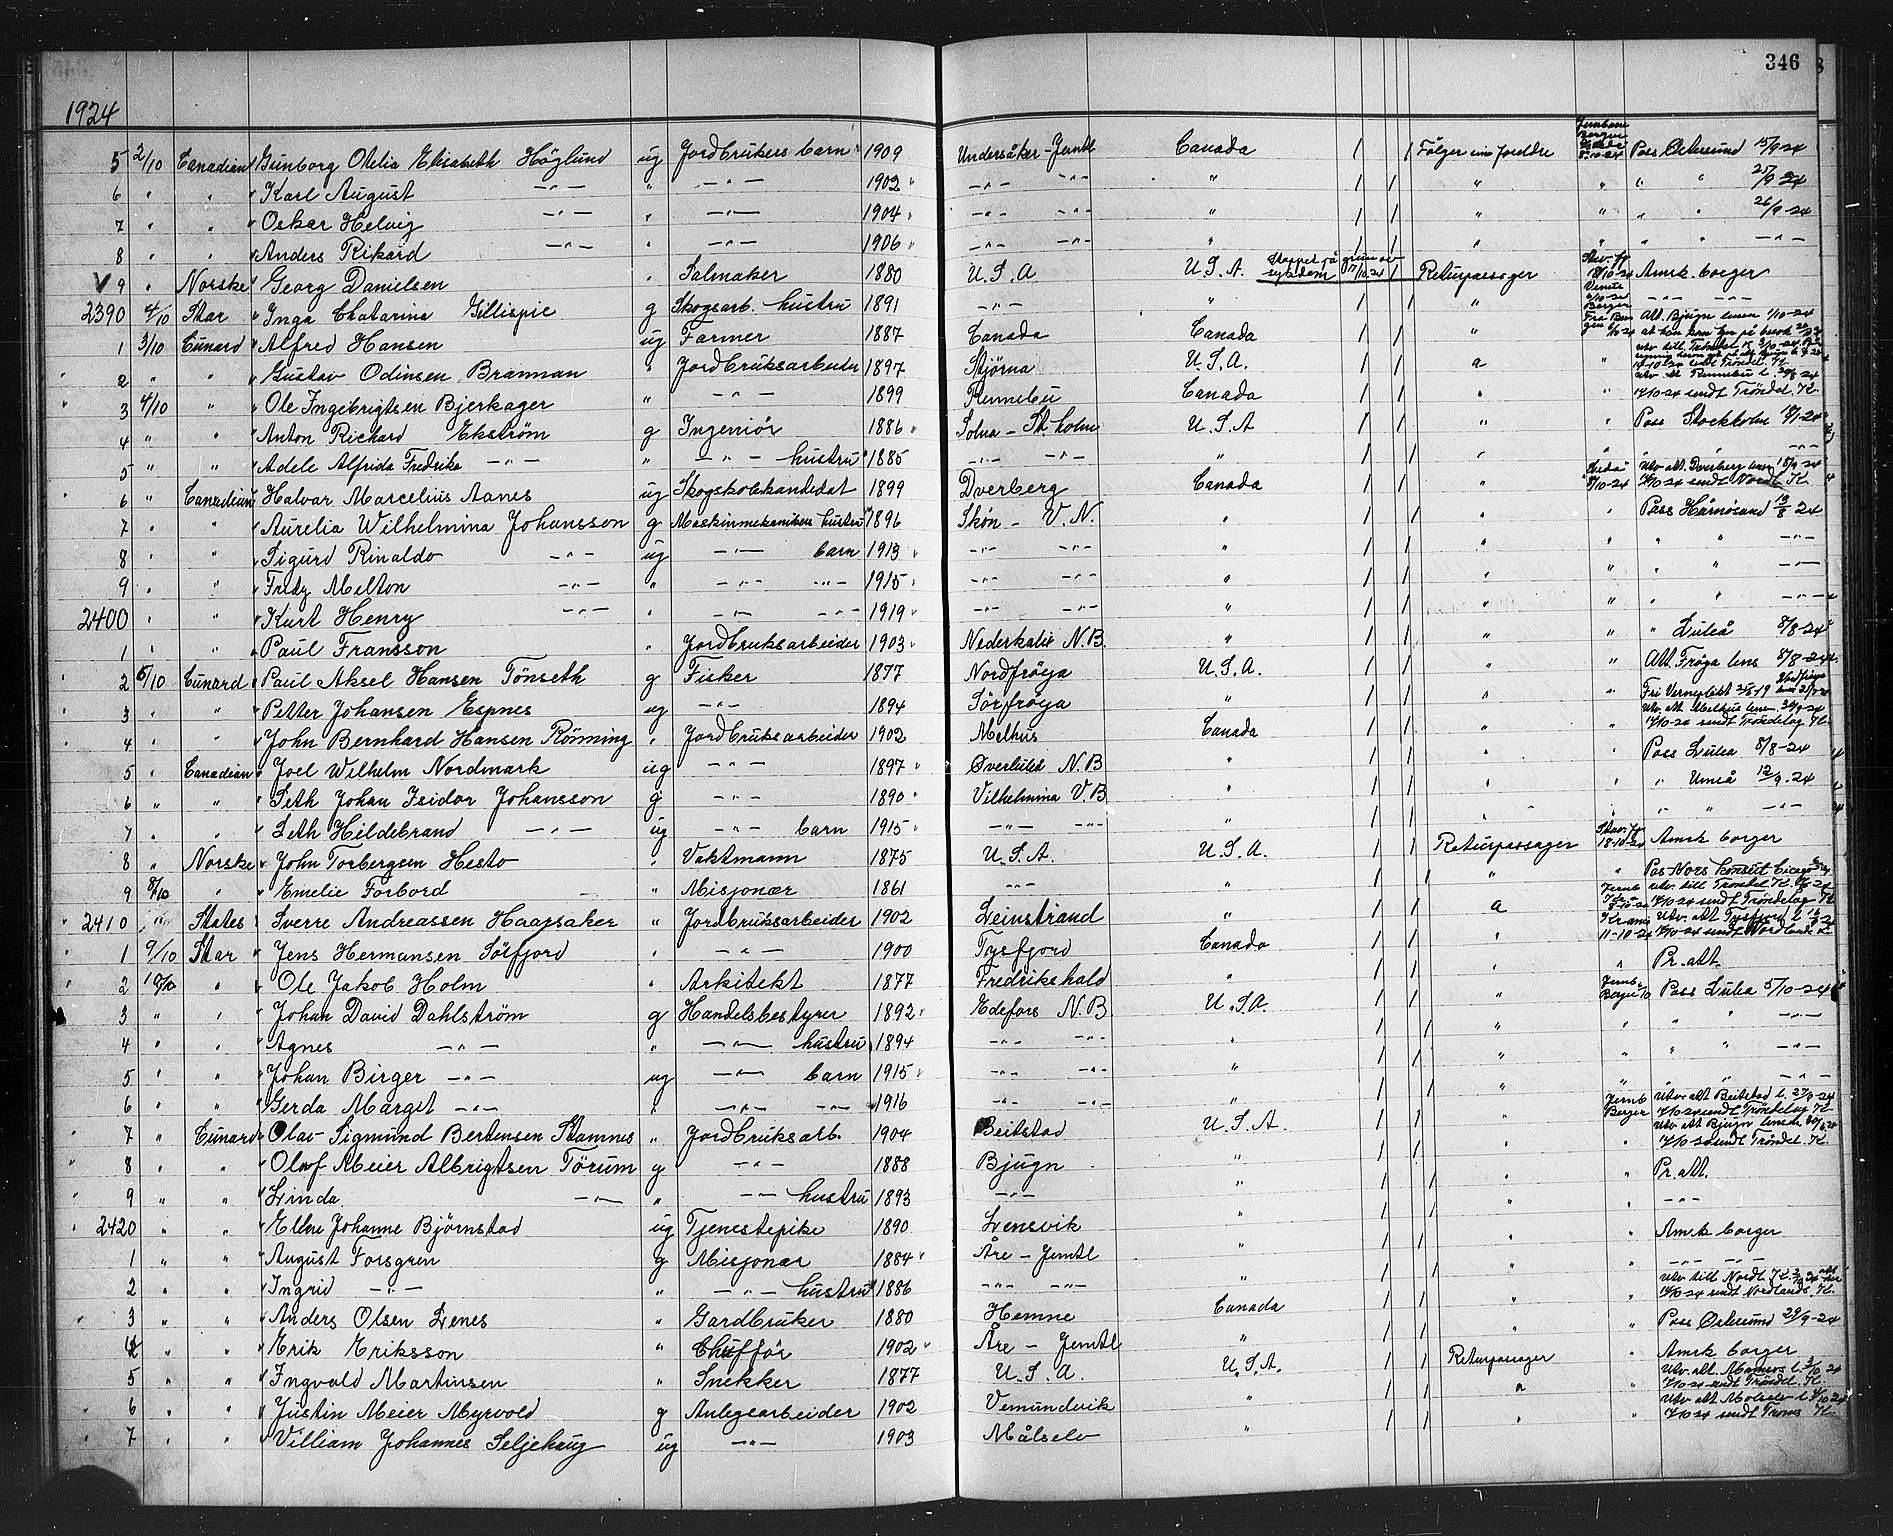 346
1924
5 2/10 Canadian Gunborg Otelia Elisabeth Höglund ug Jordbrukers barn 1909 Undersåker - Jemtl Canada 1 1 Følger sine foreldre 8-10-24 Pass Østersund 15/9 24
6 " " " Karl August —"— " —"— 1902 " —"— —"— " 1 1 " " " " 25/9 24
7 " " " Oskar Helvig —"— " —"— 1904 " —"— —"— " 1 1 " " " " 26/9-24
8 " " " Anders Rikard —"— " —"— 1906 " —"— —"— " 1 1 " " " " —"—
V 9 " Norske " Georg Danielsen " Salmaker 1880 U.S.A U.S.A. Stoppet på grunn av sykdom 17/10 24 1 Returpassager 18/10-24 Amrk borger
2390 4/10 Star " Inga Chatarina Gillispie g Skogsarb. hustru 1891 —"— " 1 1 " Bergen —"— —"—
1 3/10 Cunard " Alfred Hansen ug Farmer 1887 Canada Canada 1 1 " Att. Bjugn lensm 1/10-24
2 " " " Gustav Odinsen Brannan " Jordbruksarbeider 1897 Stjørna U.S.A. 1 1 a "
3 4/10 " " Ole Ingebrigtsen Bjerkager " —"— 1899 Rennebu Canada 1 1 " " 14/10-24 sendt Trøndel. K.
4 " " " Anton Richard Ekström g Ingeniør 1886 " Solna - St. holm U.S.A 1 1 " " Pass Stockholm
5 " " " Adele Alfrida Fredrika —"— " —"— hustru 1885 —"— —"— " 1 1 " " " —"—
6 " Canadian " Halvar Marcelius Aanes ug Skogskolekandidat 1899 Dverberg Canada 1 1 " 8/10-24 Utv. att. Dverberg lensm 15/9-24 14/10-24 sendt Nordl. K.
7 " " " Aurelia Wilhelmina Johansson g Maskinmekanikers hustru 1896 Skön - V.N. " 1 1 " " Pass Härnösand 19/8 24
8 " " " Sigurd Rinaldo —"— ug —"— barn 1913 " —"— —"— " 1 1 " " " " —"—
9 " " " Fredy Melton —"— " —"— —"— 1915 " —"— —"— " 1 1 " " " " —"—
2400 " " " Kurt Henry —"— " —"— —"— 1919 " —"— —"— " 1 1 " " " " —"—
1 " " " Paul Fransson " Jordbruksarbeider 1903 " Nederkalix N.B. " 1 1 " " " Luleå 8/8-24
2 6/10 Cunard " Paul Aksel Hansen Tönseth g Fisker 1877 Nordfröya U.S.A. 1 1 " " Att. Fröya lens 8/8-24
3 " " " Petter Johansen Espnes ug —"— 1894 Sörfröya " 1 1 " " Fri Verneplikt
4 " " " John Bernhard Hansen Rönning " Jordbruksarbeider 1902 Melhus Canada 1 1 " " Utv. att Melhus lensm. 30/9-24 14/10-24 sendt Trøndelag K.
5 " Canadian " Joel Wilhelm Nordmark ug —"— 1897 " Överluleå N.B " 1 1 " " Pass Lulea 8/8-24
6 " " " Seth Johan Isidor Johansson g —"— 1890 " Vilhelmina V.B " 1 1 " " " Umeå 12/9.24
7 " " " Seth Hildebrand —"— ug —"— barn 1915 " —"— —"— " 1 1 " " " " —"—
8 " Norske " John Torbergsen Hesto " Vaktmann 1875 U.S.A. U.S.A. 1 1 Returpassager 18-10-24 Amrk borger
9 8/10 " " Emelie Forbord " Misjonær 1861 —"— " 1 1 " "
2410 " States " Sverre Andreassen Haagsaker " Jordbruksarbeider 1902 Leinstrand " 1 1 a 14/10-24 sendt Trøndelag K.
1 9/10 Star " Jens Hermansen Sörfjord " —"— 1900 Tysfjord Canada 1 1 " 11-10-24 Utv. att Tysfjord 14/10-24 sendt Nordlands K.
2 10/10 " " Ole Jakob Holm " Arkitekt 1877 Fredrikshald " 1 1 " " Pr. att.
3 " " " Johan David Dahlström g Handelsbestyrer 1892 " Edefors N.B U.S.A. 1 1 " Pass Lulea 5/10-24
4 " " " Agnes —"— " —"— hustru 1894 —"— —"— " 1 1 " " " " —"—
5 " " " Johan Birger —"— ug —"— barn 1915 " —"— —"— " 1 1 " " " " —"—
6 " " " Gerda Marget —"— " —"— —"— 1916 —"— —"— " 1 1 " " " " —"—
7 " Cunard " Olav Sigmund Bertensen Stamnes " Jordbruksarb. 1904 Beitstad U.S.A. 1 1 " Utv. att Beitstad l. 27/9-24 14/10-24 sendt Trøndelag K.
8 " " " Olaf Meier Albrigtsen Törum g —"— 1888 Bjugn " 1 1 " " Utv att Bjugn lensm. 14/10-24 sendt Trøndel. K.
9 " " " Linda —"— " —"— hustru 1893 —"— " 1 1 " " Pr. att.
2420 " " " Ellne Johanne Björnstad ug Tjenestepike 1890 Lensvik " 1 1 " " —"—
1 " " " August Forsgren g Misjonær 1884 " Åre - Jemtl " 1 1 " " Amrk borger
2 " " " Ingrid —"— " —"— hustru 1886 —"— —"— " 1 1 " " —"— —"—
3 " " " Anders Olsen Lenes " Gardbruker 1880 Hemne Canada 1 1 " " 14/10-24 sendt Nordlands K.
4 " " " Erik Eriksson " Chufför 1902 " Åre - Jemtl " 1 1 " " Pass Østersund 29/9-24
5 " " " Ingvald Martinsen " Snekker 1877 U.S.A. U.S.A. 1 1 Returpassager " Amrk borger
6 " " " Justin Meier Myrvold g Anlegsarbeider 1902 Vemundvik " 1 1 a " 14/10-24 sendt Trøndel. K.
7 " " " Villiam Johannes Seljehaug ug —"— 1903 Målselv " 1 1 " " Utv att Målselv l 4/10 24 14/10-24 sendt Troms K.